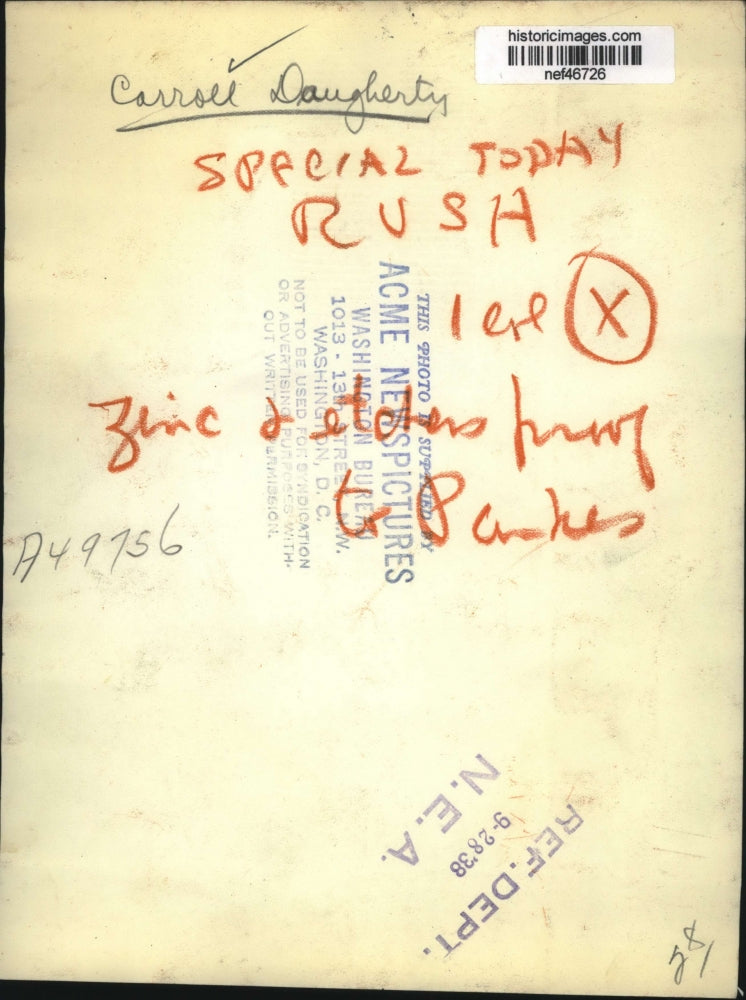 historicimages.com
nef46726
Carroll Daugherty
SPECIAL TODAY
RUSH
1 col X
zinc & etchers proof
to
A49756
THIS PHOTO IS SUPPLIED BY
ACME NEWSPICTURES
WASHINGTON BUREAU
1013 - 13th STREET, N.W.
WASHINGTON, D. C.
NOT TO BE USED FOR SYNDICATION
OR ADVERTISING PURPOSES WITH-
OUT WRITTEN PERMISSION.
N.E.A.
9-28'38
REF. DEPT.